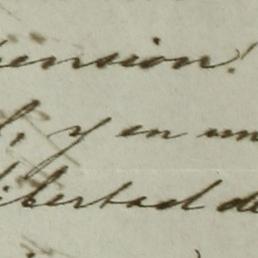 ension!
, y en un
libertad de